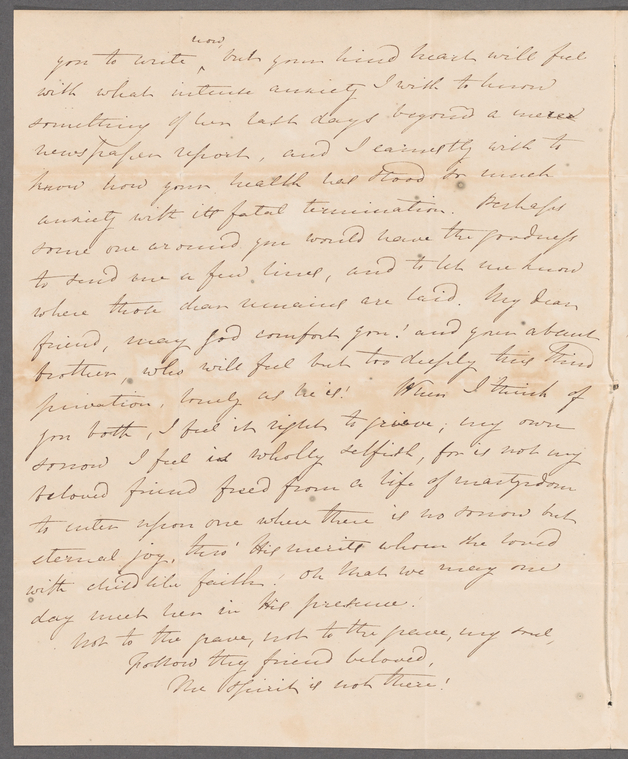 now
you to write ^ but your kind heart will feel
with what intense anxiety I wish to know
something of her last days beyond a mere
newspaper report, and I earnestly wish to
know how your health has stood so much
anxiety with its fatal termination. Perhaps
some one around you would have the goodness
to send me a few lines, and to let me know
where those dear remains are laid. My dear
friend, may God comfort you! and your absent
brother, who will feel but too deeply this third
privation, lonely as he is! When I think of
you both, I feel it right to grieve; my own
sorrow I feel is wholly selfish, for is not my
beloved friend freed from a life of martyrdom
to enter upon one where there is no sorrow but
eternal joy, thro' His merits whom she loved
with childlike faith! Oh that we may one
day meet her in His presence!
Not to the grave, not to the grave, my soul,
Follow thy friend beloved,
The spirit is not there!